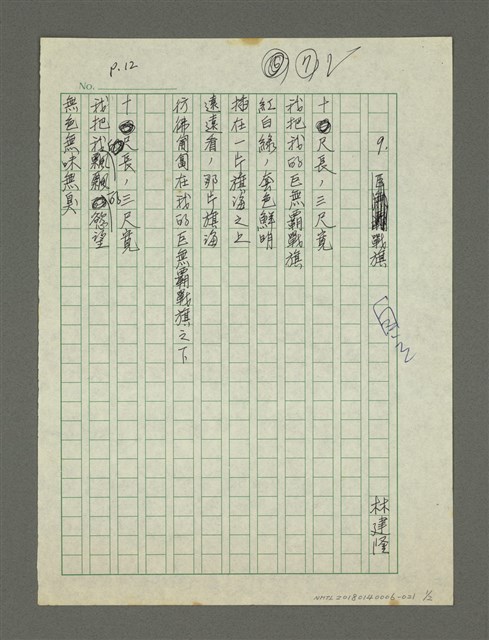 P.12
⑥ ⑦
No.
9. 戰旗
林建隆
十尺長，三尺寬
我把我的巨無霸戰旗
紅白綠，套色鮮明
插在一片旗海之上
遠遠看，那片旗海
彷彿匍匐在我的巨無霸戰旗之下
十尺長，三尺寬
我把我飄飄的慾望
無色無味無臭
NMTL20180140006-001 1/2